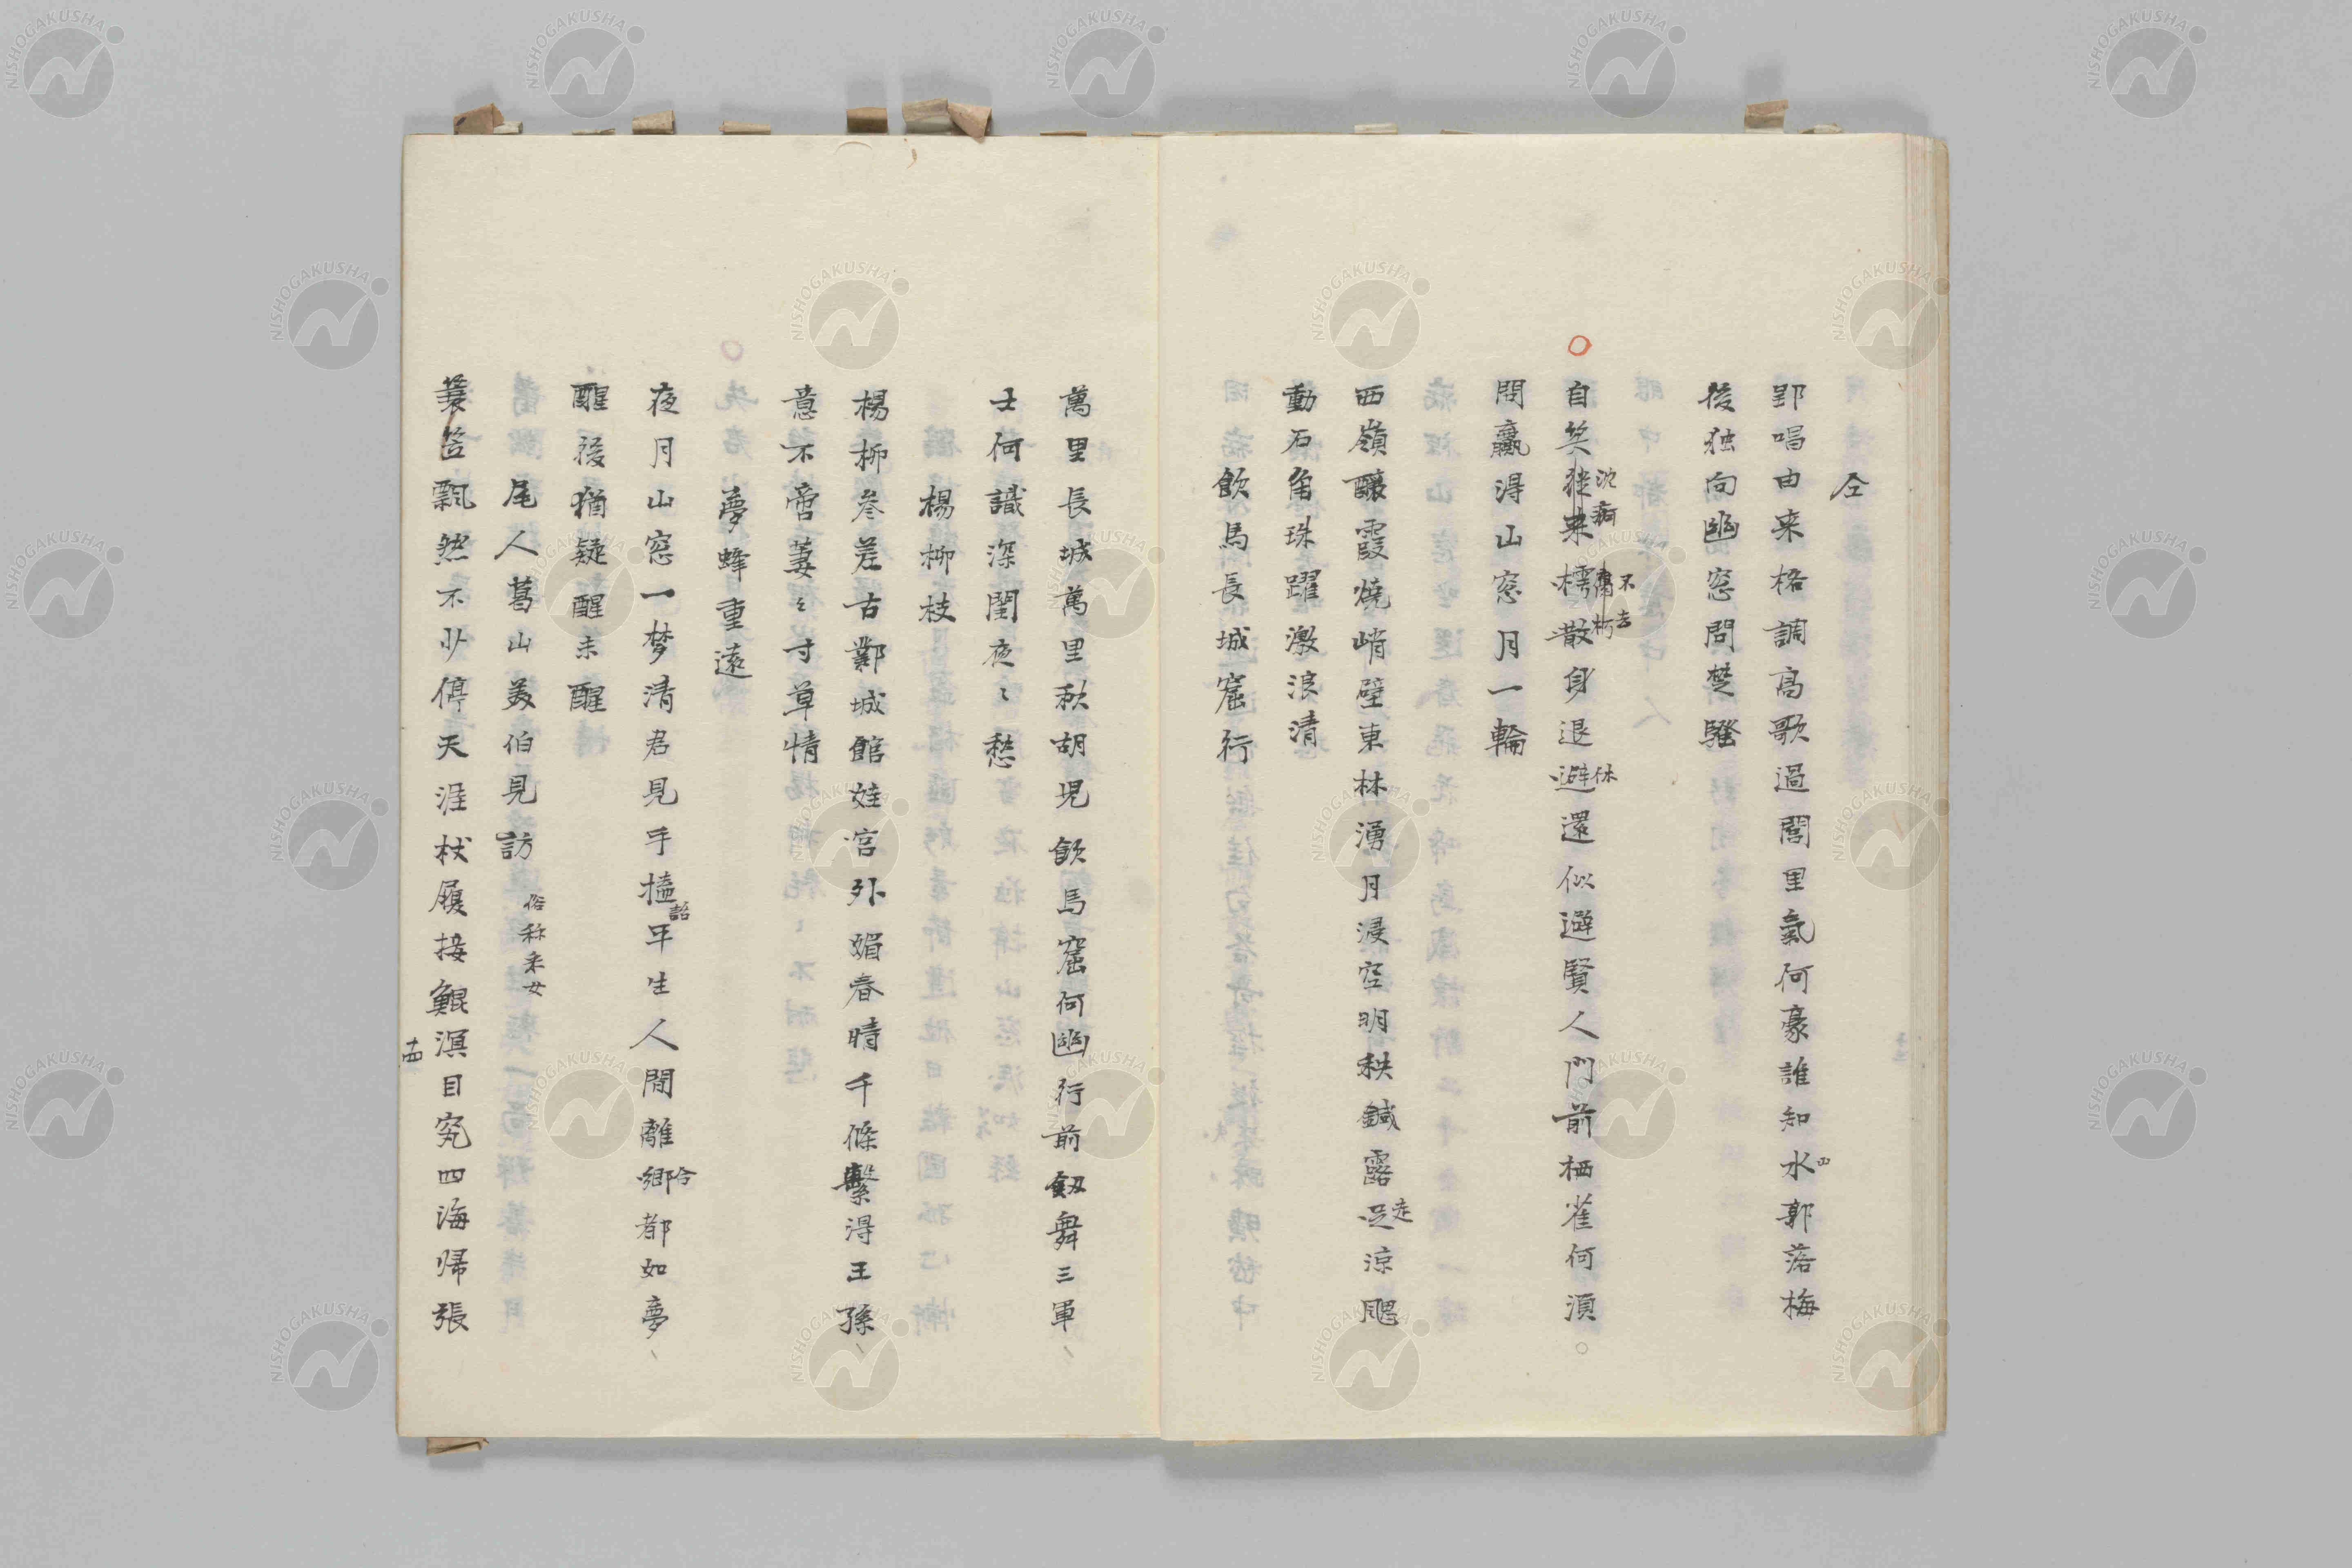 仝
郢唱由来格調高歌過閭里氣何豪誰知水郭落梅
四
後独向幽窓問楚騷
自笑従来樗散身退避還似避賢人門前栖雀何須
沈痾
不去
朽
休
問贏得山窓月一輪
西嶺醸霞燒峭壁東林湧月浸空明秧鍼露足涼颸
走
動石角珠躍激浪清
飲馬長城窟行
萬里長城萬里秋胡児飲馬窟何幽行前劔舞三軍
士何識深閨夜〻愁
楊柳枝
楊柳参差古鄴城館娃宮外媚春晴千條繫得王孫
意不啻萋〻寸草情
夢蜂重遠
夜月山窓一梦清君見手搕平生人間離郷都如夢
詒
合
醒後猶疑醒未醒
尾人葛山美伯見訪
俗称釆女
蓑笠飄然不少停天涯杖履接鯤溟目究四海帰張
十四